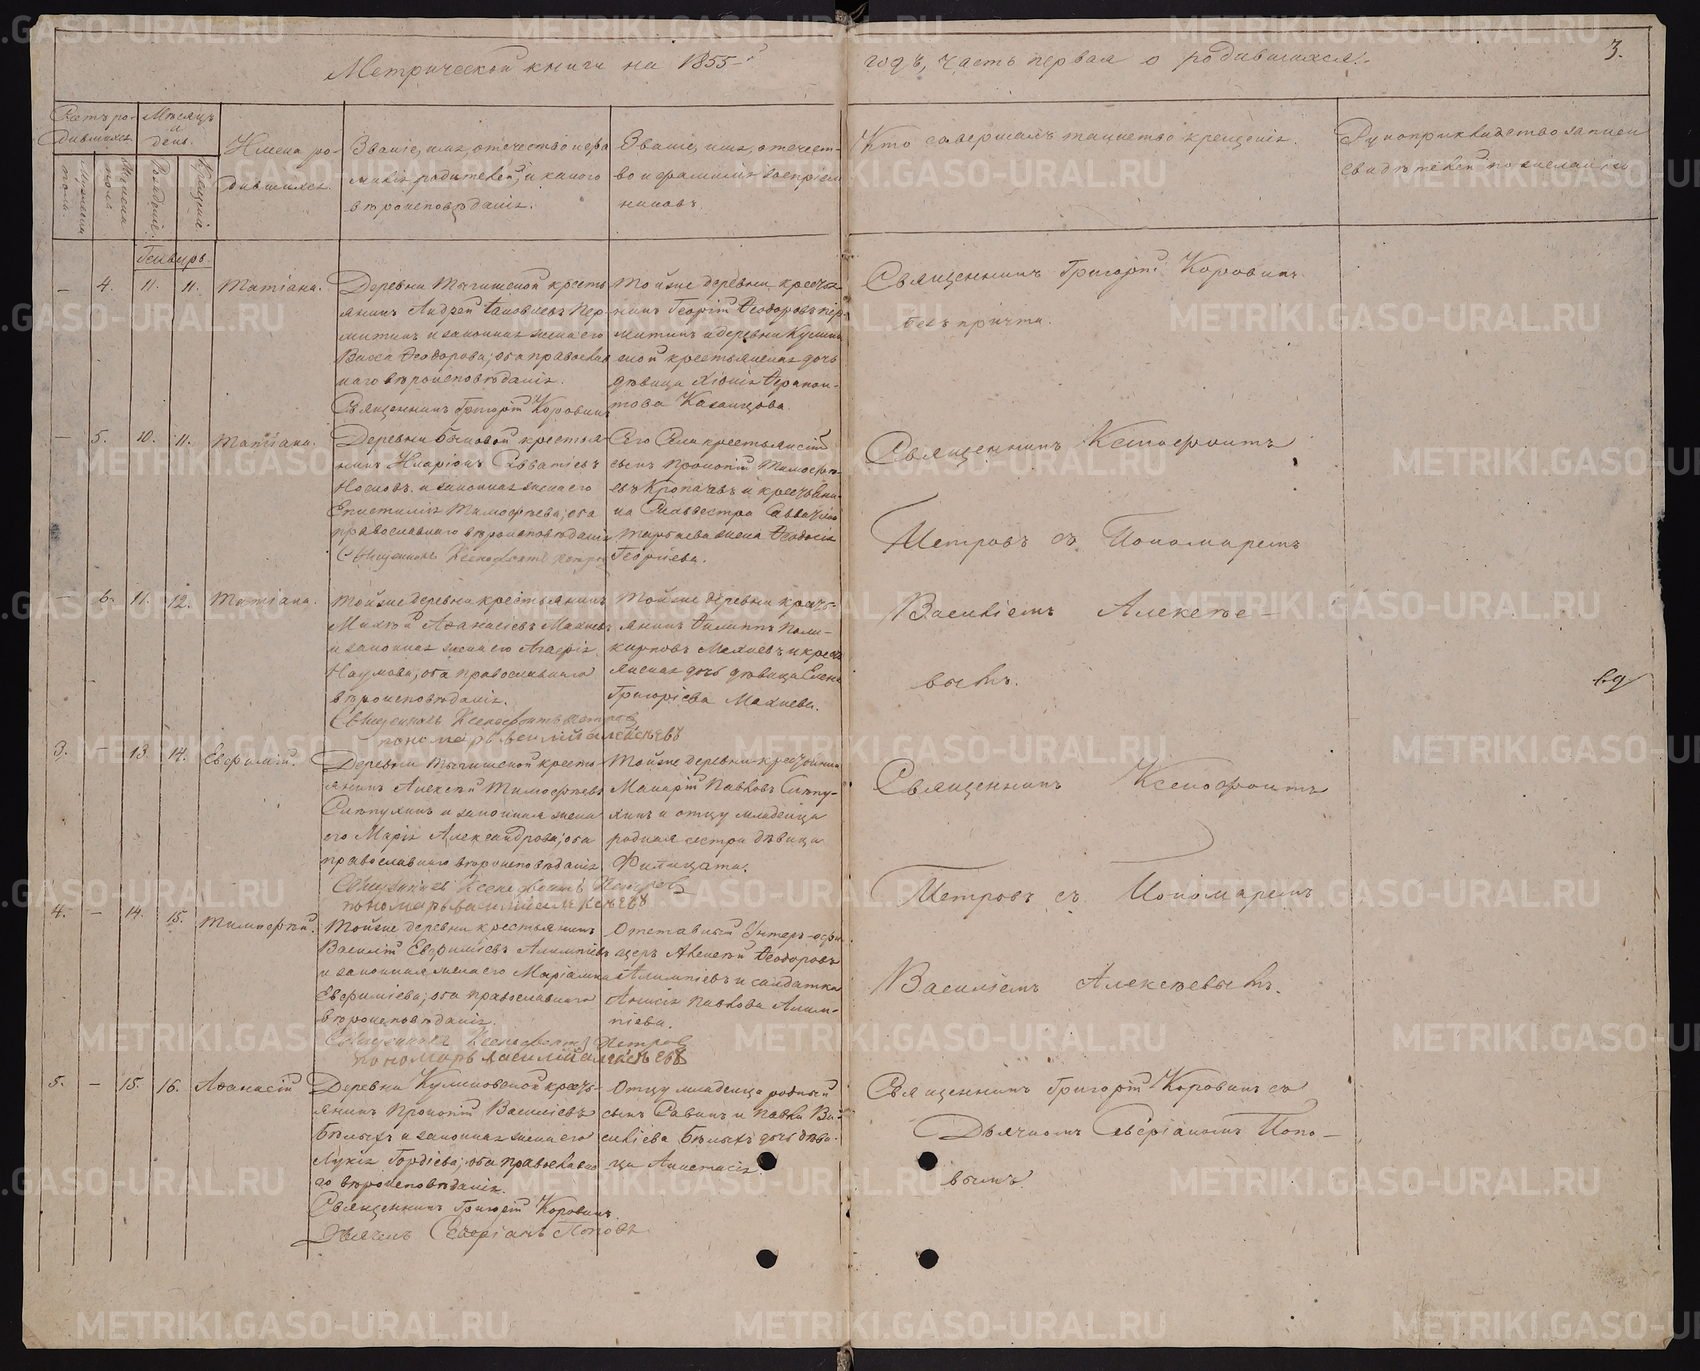 Метрической книги на 1855-й
годъ, часть первая о родившихся.
3.
Счетъ ро-
дившихся.
Мѣсяцъ
и
день.
Мужеска
пола.
Женска
пола.
Рожденія.
Крещенія.
Имена ро-
дившихся.
Званіе, имя, отчество и фа
милія родителей, и какого
вѣроисповѣданія.
Званіе, имя, отечест-
во и фамилія воспріем
никовъ.
Кто совершалъ таинство крещенія.
Рукоприкладство записи
свидѣтелей по желанію
Генварь
— 4. 11. 11. Татіана.
Деревни Тыгишской кресть
янинъ Андрей Іаковлевъ Пер
митинъ и законная жена его
Васса Ѳеодорова; оба православ
наго вѣроисповѣданія.
Священникъ Григорій Коровинъ
Той же деревни кресть
нинъ Георгій Ѳеодоровъ Пер
митинъ и деревни
ской крестьянская дочь
дѣвица Хіонія Ѳерапон-
това Казанцова.
Священникъ Григорій Коровинъ
безъ причта.
— 5. 10. 11. Татіана.
Деревни Быковой крестья
нинъ Иларіонъ Савватіевъ
Носковъ и законная жена его
Епистимія Тимофѣева; оба
православнаго вѣроисповѣданія
Священникъ Ксенофонтъ Петровъ
Сего Села крестьянскій
сынъ Прокопій Тимофѣ-
евъ Кропачевъ и крестьяни
на Сильвестра
жена Ѳеодосія
Георгіева.
Священникъ Ксенофонтъ
Петровъ съ Пономаремъ
Василіемъ Алексѣе-
вымъ.
— 6. 11. 12. Татіана.
Той же деревни крестьянинъ
Михей Аѳанасіевъ Махневъ
и законная жена его Агафія
Наумова; оба православнаго
вѣроисповѣданія.
Священникъ Ксенофонтъ Петровъ
пономарь Василій Алексѣевъ
Той же деревни кресть-
янинъ Филиппъ Поли-
карповъ Махневъ и кресть
янская дочь дѣвица Елена
Григоріева Махнева.
3. — 13. 14. Евфимій.
Деревни Тыгишской кресть
янинъ Алексѣй Тимофѣевъ
Слѣпухинъ и законная жена
его Марія Александрова; оба
православнаго вѣроисповѣданія
Священникъ Ксенофонтъ Петровъ
пономарь Василій Алексѣевъ
Той же деревни крестьянинъ
Макарій Павловъ Слѣпу-
хинъ и отцу младенца
родная сестра дѣвица
Филицата.
Священникъ Ксенофонтъ
Петровъ съ Пономаремъ
Василіемъ Алексѣевымъ.
4. — 14. 15. Тимофѣй.
Той же деревни крестьянинъ
Василій Евфиміевъ Алимпіевъ
и законная жена его Маріамна
Евфиміева; оба православнаго
вѣроисповѣданія.
Священникъ Ксенофонтъ Петровъ
пономарь Василій Алексѣевъ
Отставный Унтеръ-офи
церъ Алексѣй Ѳеодоровъ
Алимпіевъ и солдатка
Анисія Павлова Алим-
піева.
5. — 15 16. Аѳанасій
Деревни Куликовской кресть-
янинъ Прокопій Василіевъ
Бѣлыхъ и законная жена его
Лукія Гордіева; оба православна
го вѣроисповѣданія.
Священникъ Григорій Коровинъ
Дьячекъ Северіанъ Поповъ
Отцу младенца родный
сынъ Савинъ и Павла Ва-
силіева Бѣлыхъ дочь дѣви-
ца Анастасія.
Священникъ Григорій Коровинъ съ
Дьячкомъ Северіаномъ Попо-
вымъ
METRIKI.GASO-URAL.RU